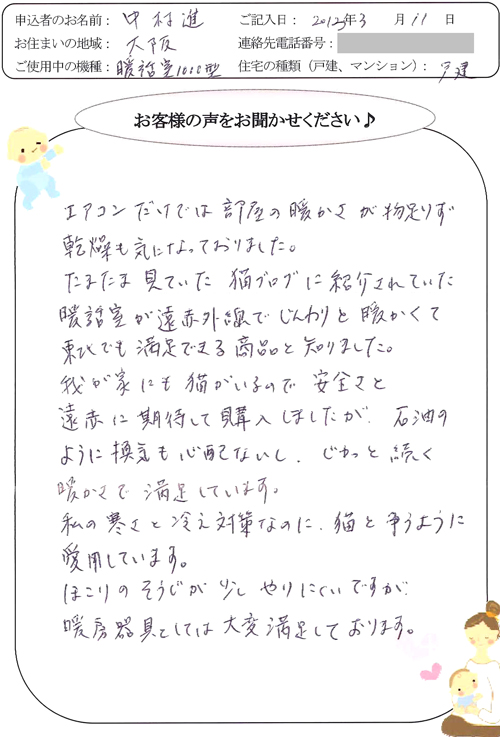 申込者のお名前： 中村進 ご記入日： 2012年3月11日
お住まいの地域： 大阪 連絡先電話番号：
ご使用中の機種： 暖話室1000型 住宅の種類（戸建、マンション）： 戸建
お客様の声をお聞かせください♪
エアコンだけでは部屋の暖かさが物足りず
乾燥も気になっておりました。
たまたま見ていた猫ブログに紹介されていた
暖話室が遠赤外線でじんわりと暖かくて
東北でも満足できる商品と知りました。
我が家にも猫がいるので安全さと
遠赤に期待して購入しましたが、石油の
ように換気も心配ないし、じわっと続く
暖かさで満足しています。
私の寒さと冷え対策なのに、猫と争うように
愛用しています。
ほこりのそうじが少しやりにくいですが
暖房器具としては大変満足しております。